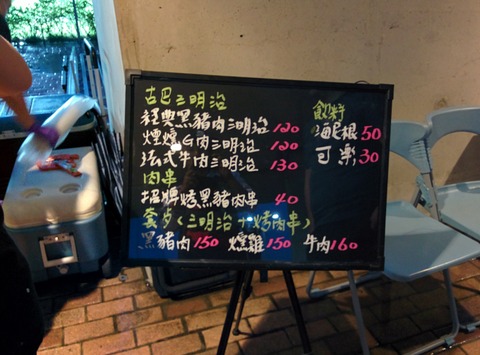 古巴三明治
經典黑豬肉三明治 120
煙燻G肉三明治 120
法式牛肉三明治 130
肉串
招牌烤黑豬肉串 40
套歺(三明治+烤肉串)
黑豬肉150 燻雞150 牛肉160
飲料
海尼根50
可樂30